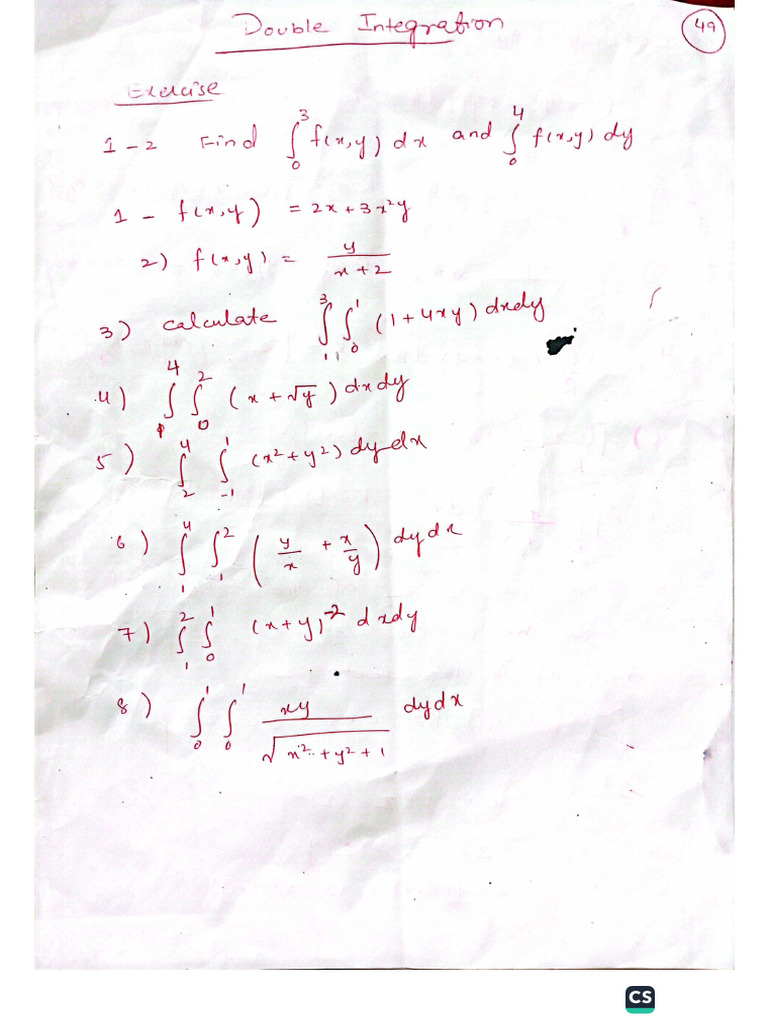 Double Integration
49
Exercise
1-2 Find ∫₀³ f(x,y) dx and ∫₀⁴ f(x,y) dy
1 - f(x,y) = 2x + 3x²y
2) f(x,y) = y/(x+2)
3) calculate ∫₁³ ∫₀¹ (1+4xy) dxdy
4) ∫₁⁴ ∫₀² (x + √y) dxdy
5) ∫₂⁴ ∫₋₁¹ (x² + y²) dydx
6) ∫₁⁴ ∫₁² (y/x + x/y) dydx
7) ∫₁² ∫₀¹ (x+y)⁻² dxdy
8) ∫₀¹ ∫₀¹ xy/√(x² + y² + 1) dydx
CS